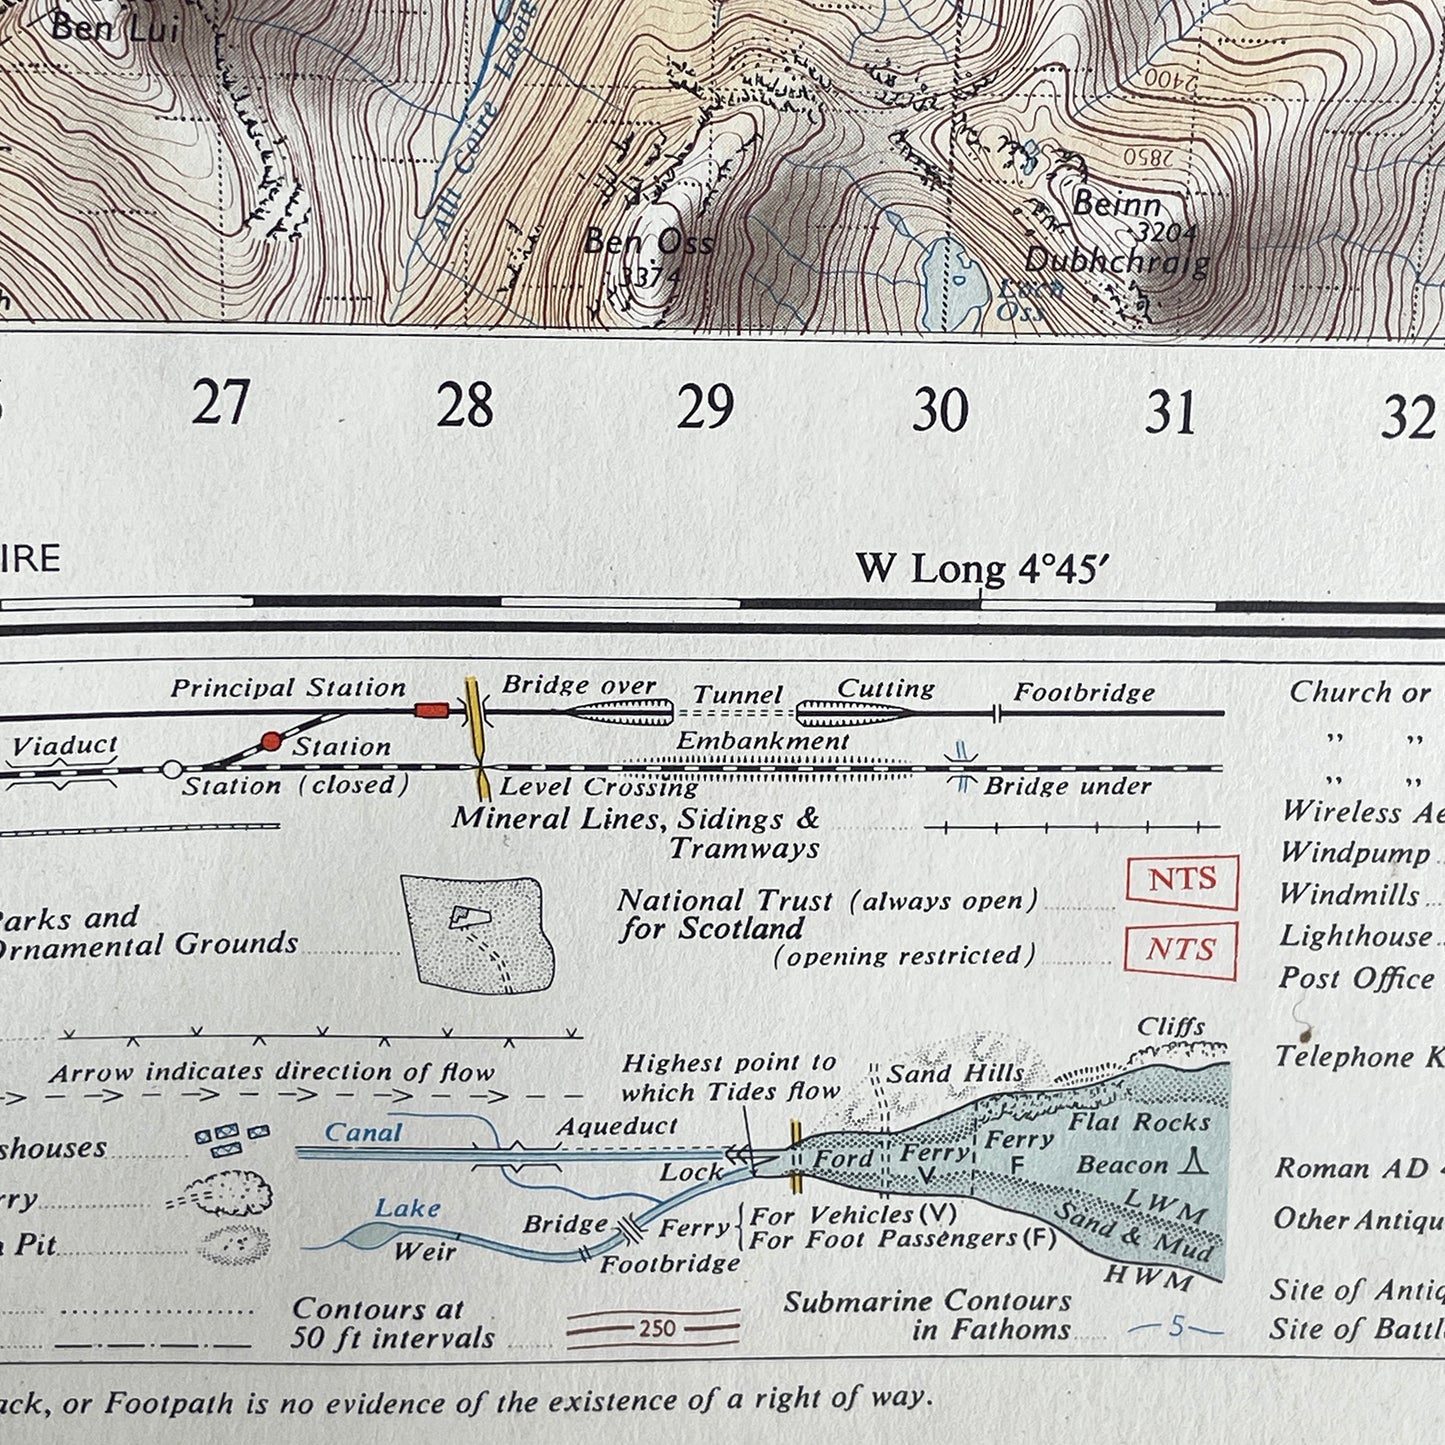 Ben Lui
Allt Coire Laoigh
2400
2850
Beinn
3204
Dubhchraig
Ben Oss
3374
Loch
Oss
27 28 29 30 31 32
IRE
W Long 4°45′
Principal Station Bridge over Tunnel Cutting Footbridge
Church or
Viaduct Station Embankment
„ „
Station (closed) Level Crossing Bridge under
„ „
Mineral Lines, Sidings &
Tramways
Wireless Ae
Windpump
Windmills
Lighthouse
Post Office
Telephone K
Parks and
Ornamental Grounds
National Trust (always open) NTS
for Scotland
(opening restricted) NTS
Arrow indicates direction of flow
Highest point to
which Tides flow
Cliffs
Sand Hills
Flat Rocks
shouses
Canal Aqueduct
Lock
Ford Ferry
V
Ferry
F
Beacon
LWM
Sand & Mud
HWM
rry
Lake
Weir
Bridge
Footbridge
Ferry For Vehicles (V)
For Foot Passengers (F)
Pit
Roman AD 4
Other Antiqu
Site of Antiq
Site of Battl
Contours at
50 ft intervals 250
Submarine Contours
in Fathoms 5
ack, or Footpath is no evidence of the existence of a right of way.